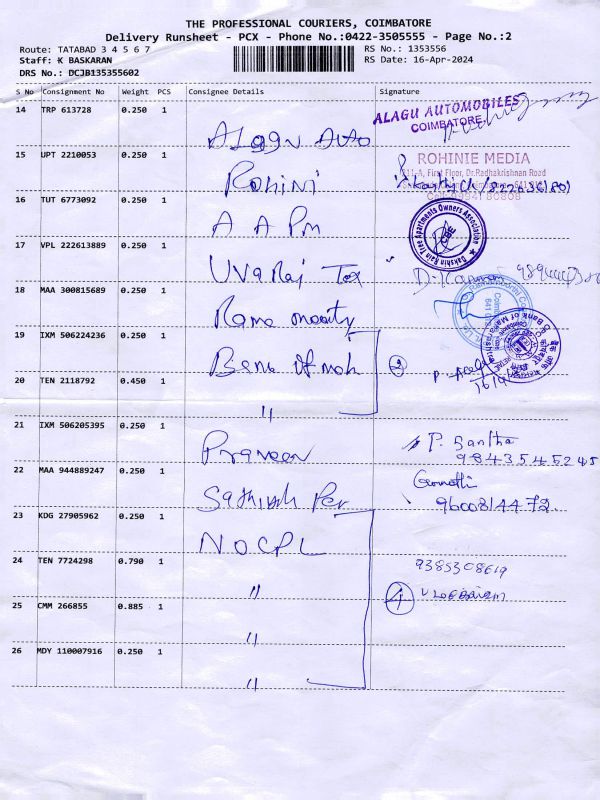 THE PROFESSIONAL COURIERS, COIMBATORE
Delivery Runsheet - PCX - Phone No.:0422-3505555 - Page No.:2
Route: TATABAD 3 4 5 6 7 RS No.: 1353556
Staff: K BASKARAN RS Date: 16-Apr-2024
DRS No.: DCJB135355602
S No Consignment No Weight PCS Consignee Details Signature
14 TRP 613728 0.250 1 Alagu Auto ALAGU AUTOMOBILES
COIMBATORE
15 UPT 2210053 0.250 1 Rohini ROHINIE MEDIA
First Floor, Dr.Radhakrishnan Road
16 TUT 6773092 0.250 1 A A Pm Dakshin Rain Tree Apartments Owners Association
CBE
17 VPL 222613889 0.250 1 Uvaraj Tex D. Kannan
18 MAA 300815689 0.250 1 Rame
19 IXM 506224236 0.250 1 Bank of mah 2
20 TEN 2118792 0.450 1 "
21 IXM 506205395 0.250 1 Praveen P. Santha
9843545245
22 MAA 944889247 0.250 1 Sathish Per Gomathi
9600814472
23 KDG 27905962 0.250 1 NOCPL
24 TEN 7724298 0.790 1 " 9385308619
4
25 CMM 266855 0.885 1 "
26 MDY 110007916 0.250 1 "